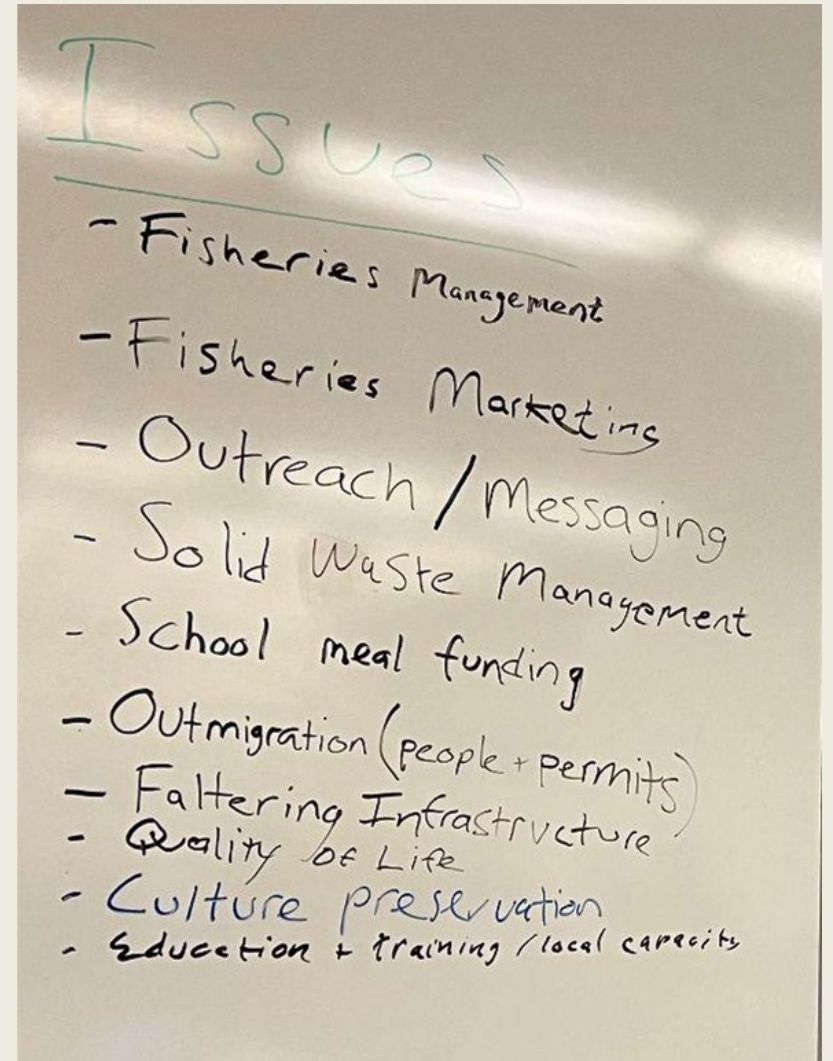 Issues
- Fisheries Management
- Fisheries Marketing
- Outreach / Messaging
- Solid Waste Management
- School meal funding
- Outmigration (people + permits)
- Faltering Infrastructure
- Quality of Life
- Culture preservation
- Education + training / local capacity